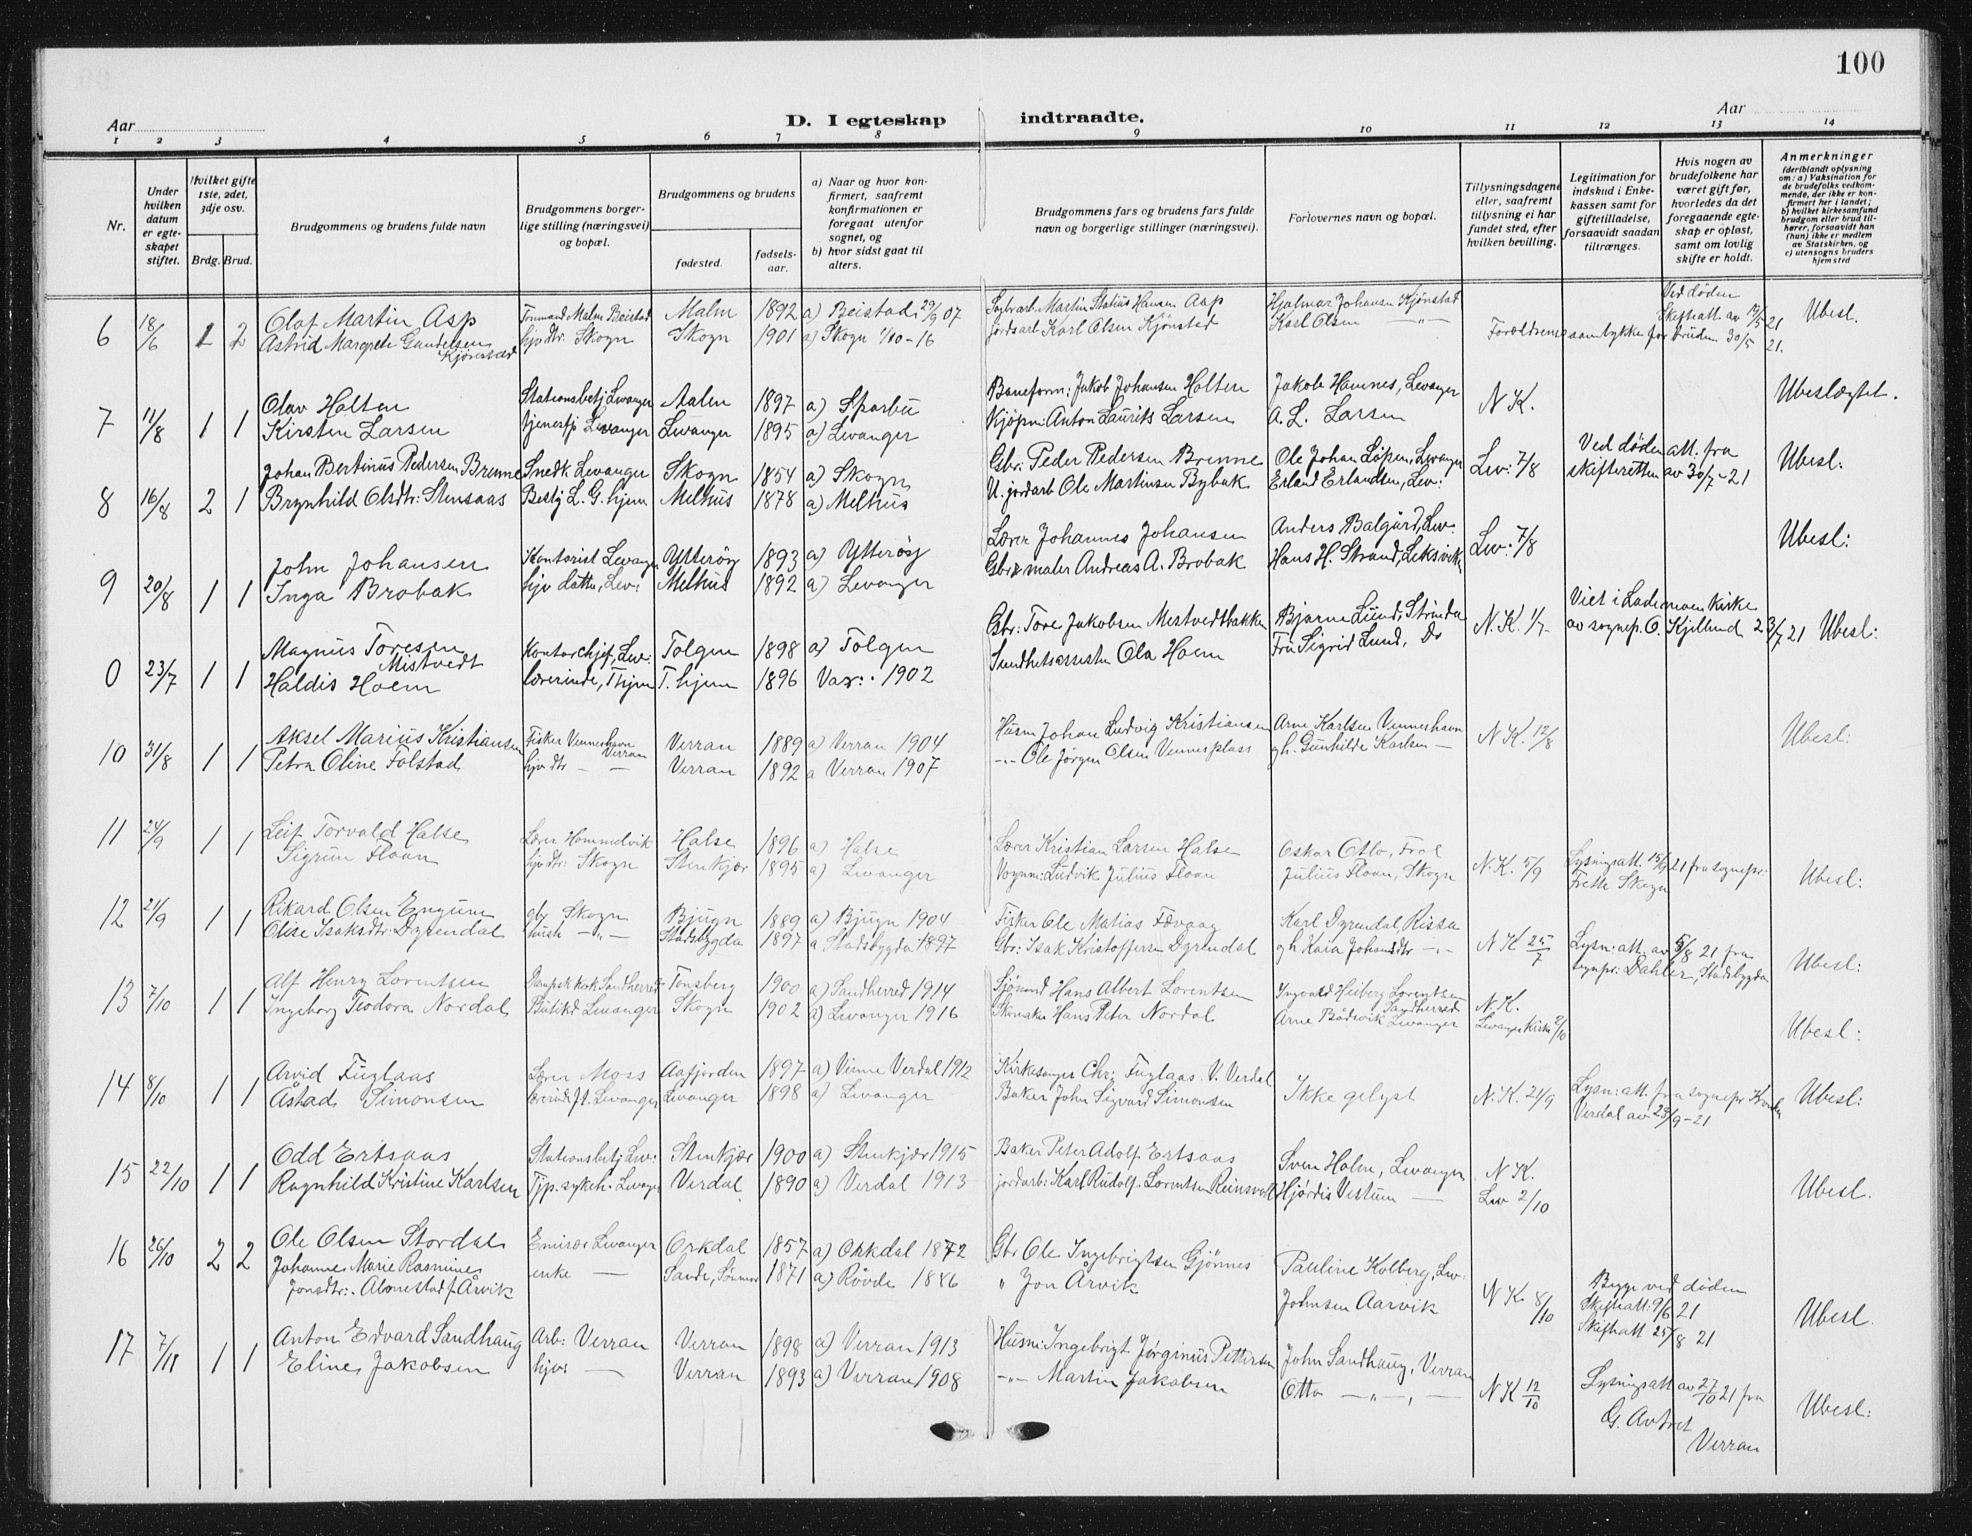 100
Aar
D. I egteskap indtraadte.
Aar
1 2 3 4 5 6 7 8 9 10 11 12 13 14
Nr.
Under hvilken datum er egteskapet stiftet.
Hvilket gifte 1ste, 2det, 3dje osv.
Brdg. Brud.
Brudgommens og brudens fulde navn
Brudgommens borgerlige stilling (næringsvei) og bopæl.
Brudgommens og brudens
fødested.
fødselsaar.
a) Naar og hvor konfirmert, saafremt konfirmationen er foregaat utenfor sognet, og
b) hvor sidst gaat til alters.
Brudgommens fars og brudens fars fulde navn og borgerlige stillinger (næringsvei).
Forlovernes navn og bopæl.
Tillysningsdagene eller, saafremt tillysning ei har fundet sted, efter hvilken bevilling.
Legitimation for indskud i Enkekassen samt for giftetilladelse, forsaavidt saadan tiltrænges.
Hvis nogen av brudefolkene har været gift før, hvorledes da det foregaaende egteskap er opløst, samt om lovlig skifte er holdt.
Anmerkninger (deriblandt oplysning om: a) Vaksination for de brudefolks vedkommende, der ikke er konfirmert her i landet; b) hvilket kirkesamfund brudgom eller brud tilhører, forsaavidt han (hun) ikke er medlem av Statskirken, og c) utensogns bruders hjemsted
6 18/6 1 2 Olaf Martin Asp Malm Beistad Malm 1892 a) Beistad 29/9 07 Martin Statius Hansen Asp Hjalmar Johansen Kjønstad Ved døden Skifteatt. av 19/5 21 Ubesl.
Astrid Margrete Gundelsen Kjønstad hjv. dtr. Skogn Skogn 1901 a) Skogn 1/10-16 jordarb. Karl Olsen Kjønstad Karl Olsen —"— Forældrenes samtykke for bruden 30/5 21.
7 11/8 1 1 Olav Holten Stationsbetj Levanger Malm 1897 a) Sparbu Baneform: Jakob Johansen Holten Jakob Hamnes, Levanger N K. Ubeslægtet.
Kirsten Larsen Levanger Levanger 1895 a) Levanger Kjøpm: Anton Laurits Larsen A. L. Larsen
8 16/8 2 1 Johan Bertinus Pedersen Brenne Snedk Levanger Skogn 1854 a) Skogn Gbr: Peder Pedersen Brenne Ole Johan Løpen, Levanger Lev: 7/8 Ved døden att. fra skifteretten av 30/7-21 Ubesl:
Brynhild Olsdtr: Stensaas Bestj L. G. hjem Melhus 1878 a) Melhus jordarb Ole Martinsen Bybak Erland Erlandsen, Lev:
9 20/8 1 1 John Johansen Kontorist Levanger Ytterøy 1893 a) Ytterøy Lærer Johannes Johansen Anders Balgård, Lev: Lev: 7/8 Ubesl:
Inga Brobak hjv datter, Lev: Melhus 1892 a) Levanger Gbr & maler Andreas A. Brobak Hans H. Strand, Leksvik
0 23/7 1 1 Magnus Toresen Mistvedt Kontorchef, Lev: Tolgen 1898 a) Tolgen Gbr: Tore Jakobsen Mestvedtbakken Bjarne Lund, Strinda N. K. 1/7- Viet i Lademoen Kirke av sognep. O. Kjellund 23/7 21 Ubesl:
Haldis Hoem Lærerinde, T.hjem T. hjem 1896 Vax: 1902 Ola Hoem Fru Sigrid Lund, Do
10 31/8 1 1 Aksel Marius Kristiansen Fisker Venneshavn Verran Verran 1889 a) Verran 1904 Husm Johan Ludvig Kristiansen Arne Karlsen Venneshavn N K. 12/8 Ubesl:
Petra Oline Folstad hjv dtr — — Verran 1892 a Verran 1907 -"- Ole Jørgen Olsen Vennesplass gh. Gunhilde Karlsen —
11 24/9 1 1 Leif Torvald Halse Lærer Hommelvik Halse 1896 a) Halse Lærer Kristian Larsen Halse Oskar Otlo, Frol N. K. 5/9 Lysningsatt. 15/9 21 fra sognepr: Frette Skogn Ubesl:
Sigrun Floan hjv dtr: Skogn Stenkjær 1895 a) Levanger Vognm: Ludvik Julius Floan Julius Floan, Skogn
12 21/9 1 1 Rikard Olsen Engum gbr Skogn Bjugn 1889 a) Bjugn 1904 Fisker Ole Matias Fævaag Karl Dyrendal, Rissa N K 25/7 Lysn: att. av 5/8 21 fra sognepr: Dahler, Stadsbygda Ubesl:
Olise Isaksdtr: Dyrendal hush —"— Stadsbygda 1897 a Stadsbygda 1897 Gbr: Isak Kristoffersen Dyrendal gh. Kaia Johansdtr —"—
13 7/10 1 1 Alf Henry Lorentsen Dampsk.kok Sandherred Tønsberg 1900 a) Sandherred 1914 Sjømand Hans Albert Lorentsen Ingvald Heiberg Lorentsen Sandherred N. K. Ubesl:
Ingeborg Teodora Nordal Butikd Levanger Skogn 1902 a) Levanger 1916 Skomaker Hans Peter Nordal Arne Bådsvik Levanger Levanger Kirke 2/10
14 8/10 1 1 Arvid Fuglaas Lærer Moss Aafjorden 1897 a) Vinne Verdal 1912 Kirkesanger Chr: Fuglaas V. Verdal Ikke gelyst N. K. 21/9 Lysn: att. fra sognepr Verdal av 29/9-21 Ubesl:
Åstad Simonsen Levanger Levanger 1898 a) Levanger Baker John Sigvard Simonsen
15 22/10 1 1 Odd Ertsaas Stationsbetj Lev: Stenkjær 1900 a) Stenkjær 1915 Baker Peter Adolf Ertsaas Sven Holm, Levanger N K. Lev 2/10 Ubesl.
Ragnhild Kristine Karlsen Tjp. sykeh. Levanger Verdal 1890 a) Verdal 1913 jordarb: Karl Rudolf Lorentsen Reinsvoll Hjørdis Vestum —
16 26/10 2 2 Ole Olsen Stordal Emisær Levanger Orkdal 1857 a) Orkdal 1872 Gbr Ole Ingebrigtsen Gjønnes Pauline Kolberg, Lev: N K 8/10 Begge ved døden Skifteatt: 9/6 21 Skifteatt 25/8 21 Ubesl.
Johanne Marie Rasmine Jonsdtr: Abonestad f. Årvik enke — Sande, Sønmør 1871 a) Røvde 1886 " Jon Årvik Johnsen Aarvik
17 7/11 1 1 Anton Edvard Sandhaug Arb: Verran Verran 1898 a) Verran 1913 Husm: Ingebrigt Jørginus Pettersen John Sandhaug, Verran N K 12/10 Lysningsatt av 27/10 21 fra G. Verran Ubesl:
Eline Jakobsen hjv: — Verran 1893 a) Verran 1908 -"- Martin Jakobsen Otto —"—